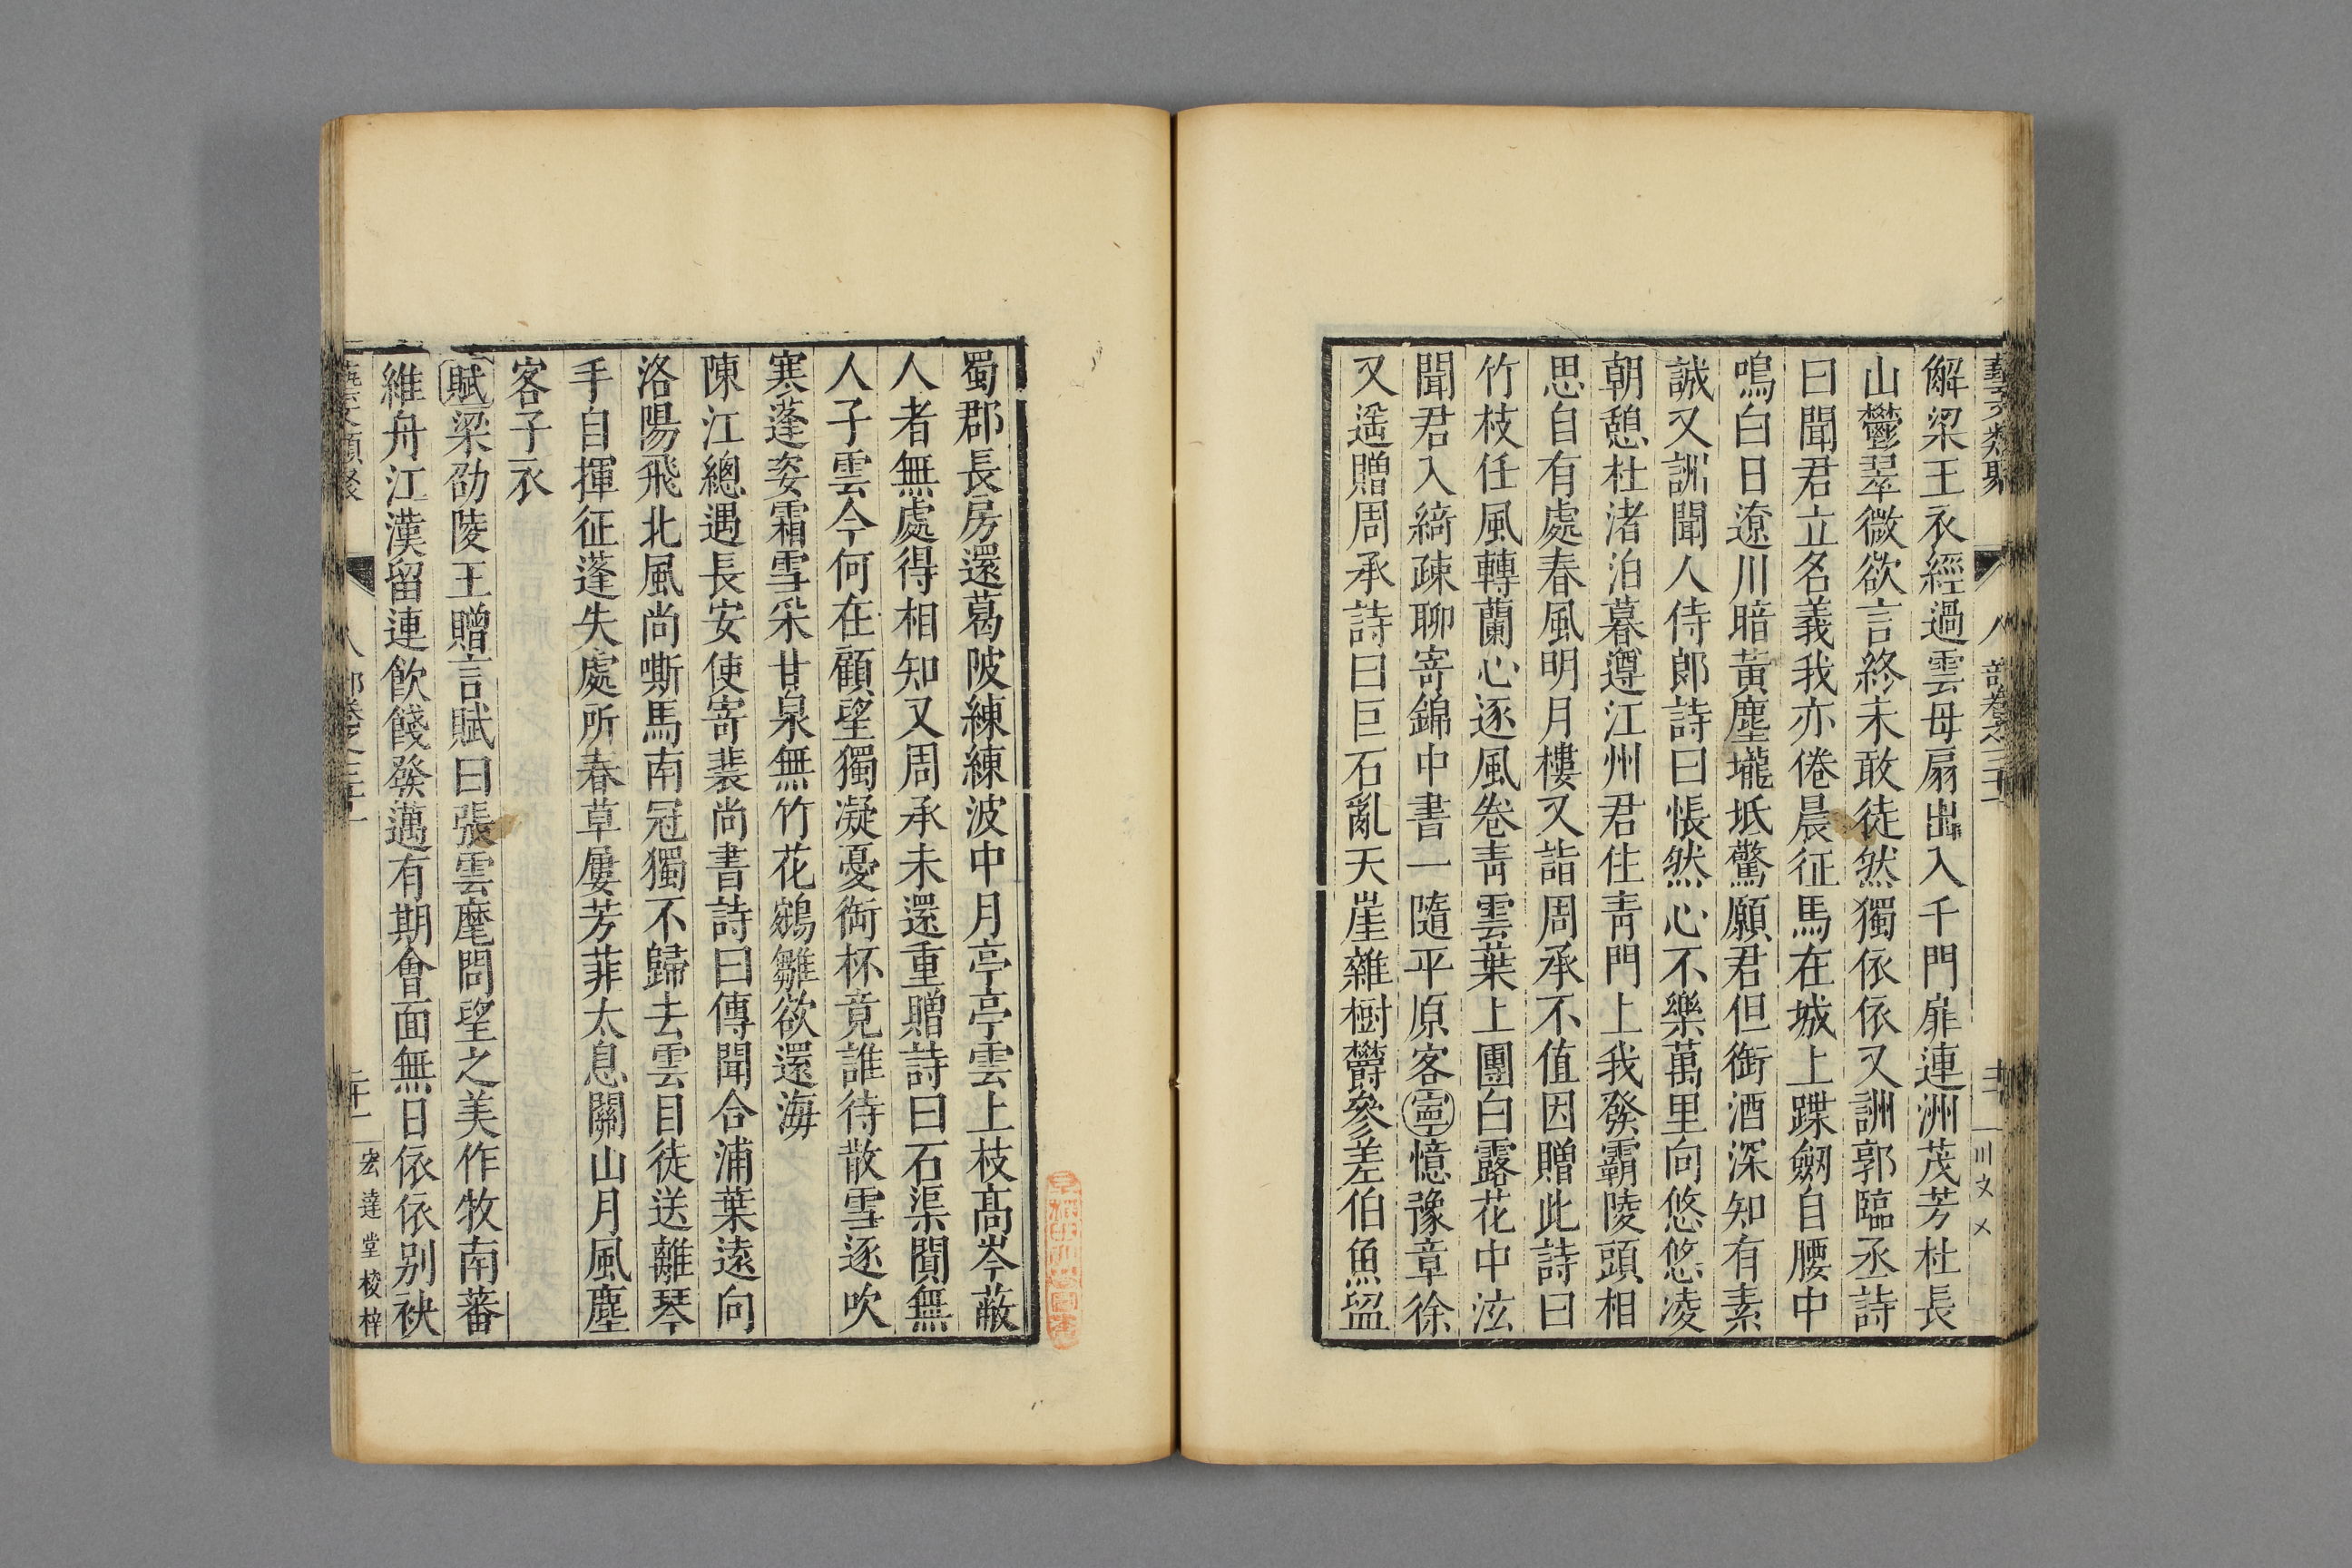 解梁王衣經過雲母扇出入千門扉連洲茂芳杜長
山鬱翠微欲言終未敢徒然獨依依又詶郭臨丞詩
曰聞君立名義我亦倦晨征馬在城上蹀劒自腰中
鳴白日遼川暗黃塵壠坻驚願君但銜酒深知有素
誠又詶聞人侍郎詩曰悵然心不樂萬里向悠悠凌
朝憩杜渚泊暮遵江州君住青門上我發霸陵頭相
思自有處春風明月樓又詣周承不值因贈此詩曰
竹枝任風轉蘭心逐風卷青雲葉上團白露花中泫
聞君入綺疎聊寄錦中書一隨平原客寧憶豫章徐
又遥贈周承詩曰巨石亂天崖雜樹鬱參差伯魚留
蜀郡長房還葛陂練練波中月亭亭雲上枝高岑蔽
人者無處得相知又周承未還重贈詩曰石渠閴無
人子雲今何在顧望獨凝憂銜杯竟誰待散雪逐吹
寒蓬姿霜雪采甘泉無竹花鵷雛欲還海
陳江總遇長安使寄裴尚書詩曰傳聞合浦葉遠向
洛陽飛北風尚嘶馬南冠獨不歸去雲目徒送離琴
手自揮征蓬失處所春草屢芳菲太息關山月風塵
客子衣
賦梁劭陵王贈言賦曰張雲麾問望之美作牧南蕃
維舟江漢留連飲餞發邁有期會面無日依依别袂
宏達堂棱梓